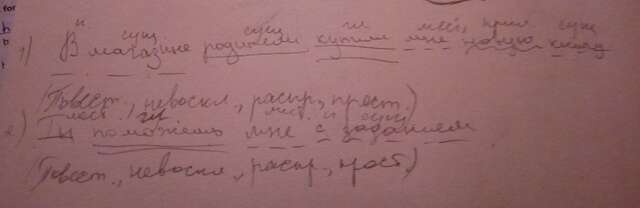 for
п сущ сущ гл мест. прил. сущ
1) В магазине родители купили мне новую книгу
(Повест., невоскл., распр., прост.)
мест. гл мест. п сущ
2) Ты поможешь мне с заданием
(Повест., невоскл., распр., прост.)